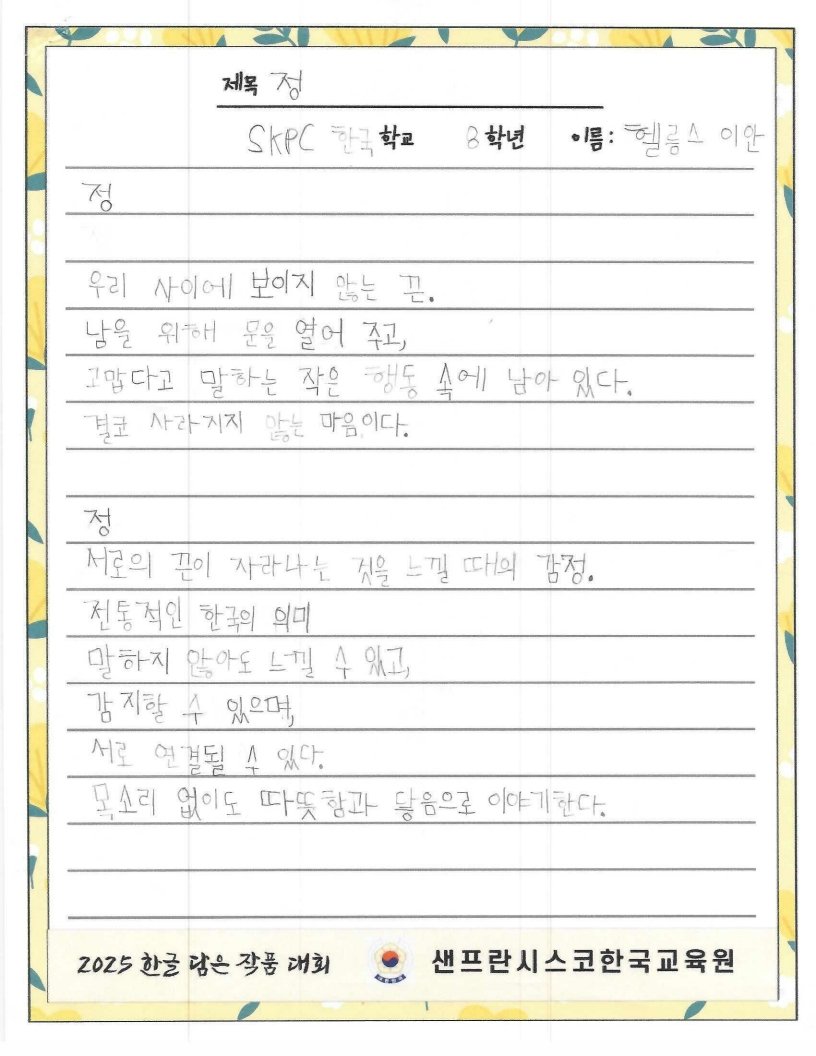 제목 정
SKPC 한국 학교 8 학년 이름: 헬름스 이안
정
우리 사이에 보이지 않는 끈.
남을 위해 문을 열어 주고,
고맙다고 말하는 작은 행동 속에 남아 있다.
결코 사라지지 않는 마음이다.
정
서로의 끈이 자라나는 것을 느낄 때의 감정.
전통적인 한국의 의미
말하지 않아도 느낄 수 있고,
감지할 수 있으며,
서로 연결될 수 있다.
목소리 없이도 따뜻함과 닿음으로 이야기한다.
2025 한글 담은 작품 대회 샌프란시스코한국교육원